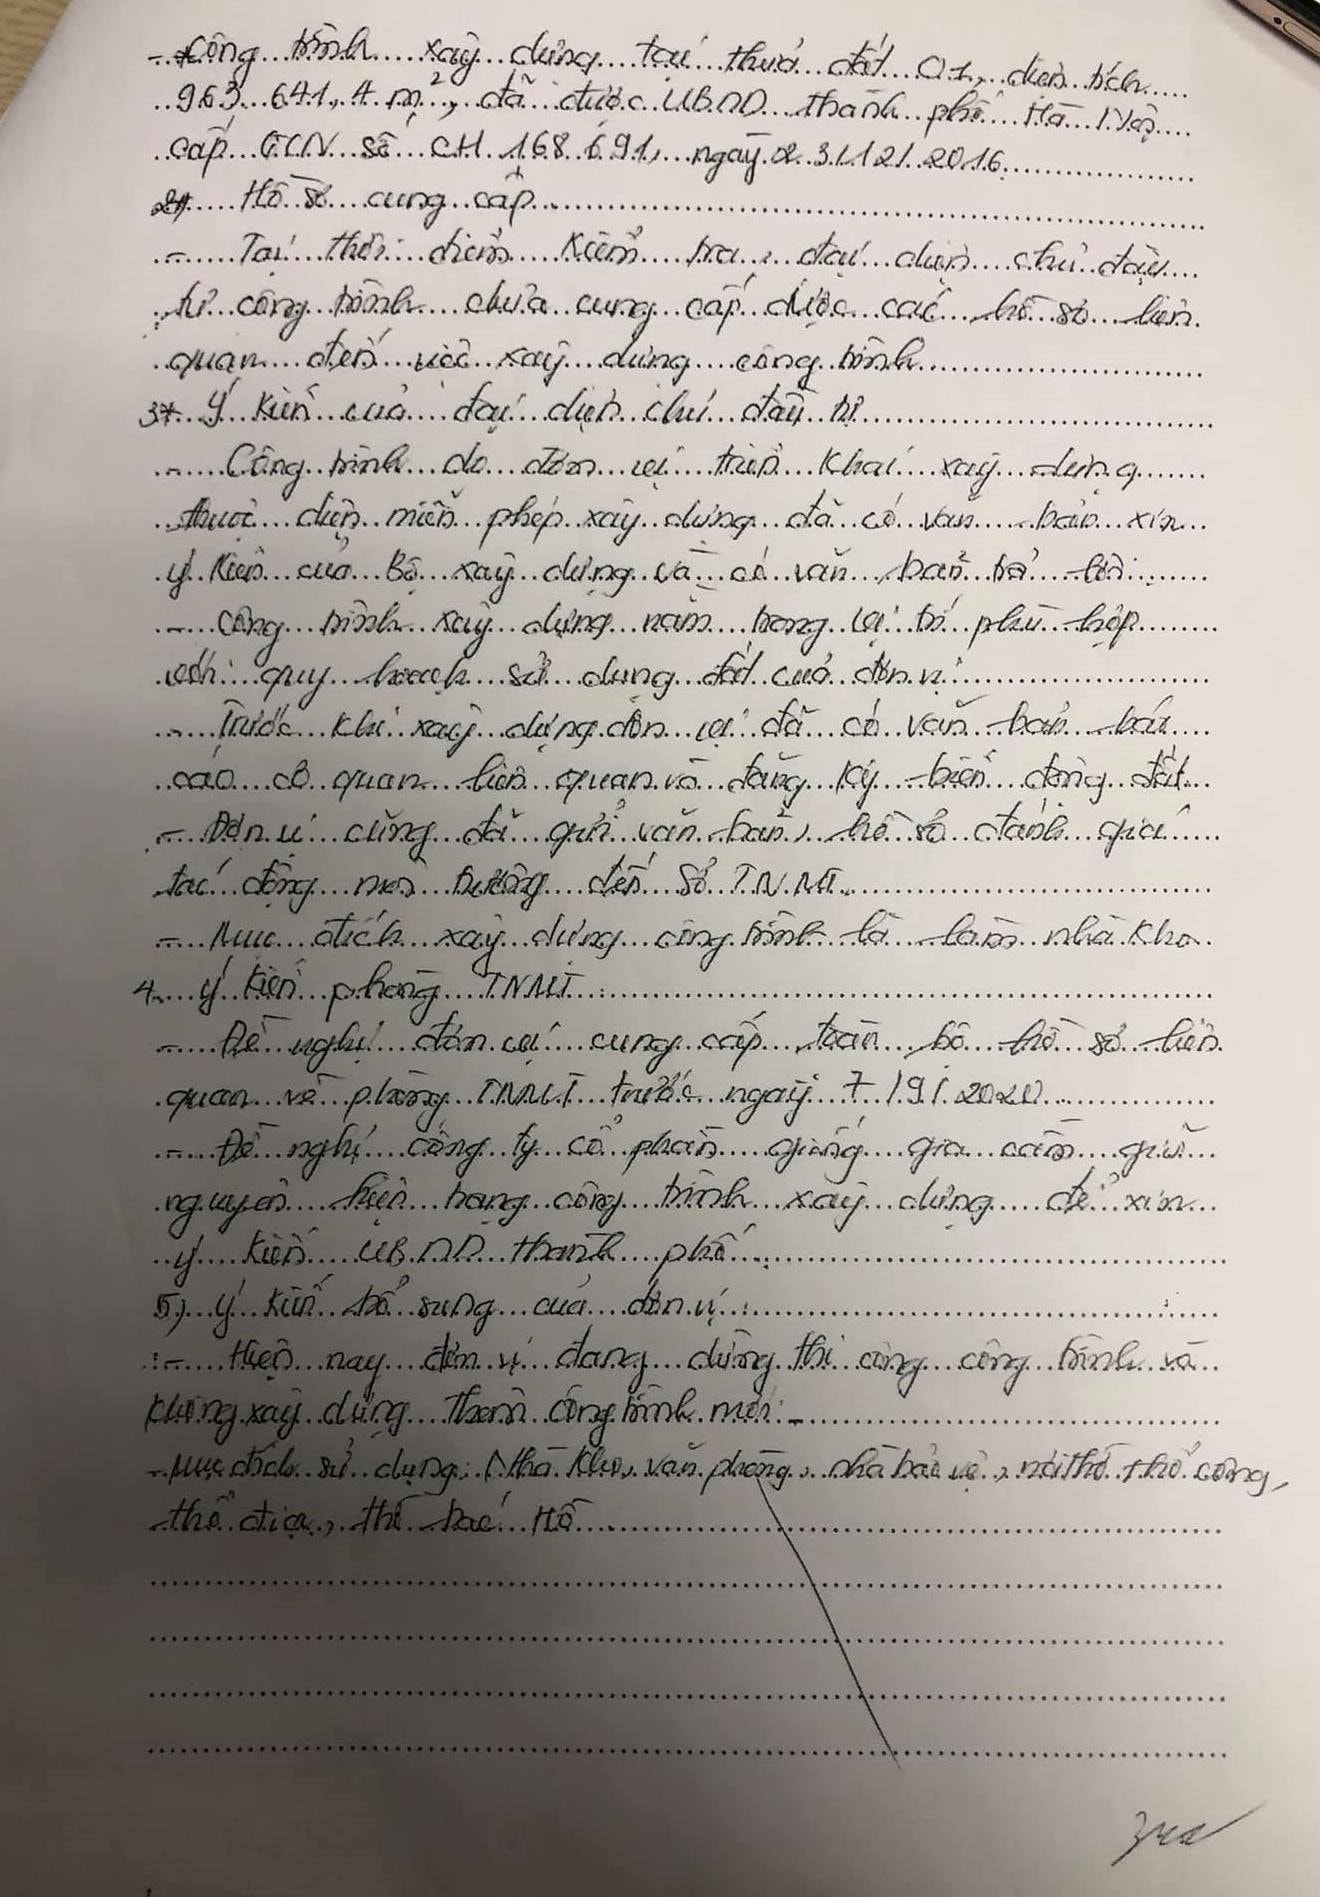 - Công trình xây dựng tại thửa đất 01, diện tích
963.641,4 m², đã được UBND thành phố Hà Nội
cấp GCN số CH 168691, ngày 23/12/2016
2, Hồ sơ cung cấp
- Tại thời điểm kiểm tra, đại diện chủ đầu
tư công trình chưa cung cấp được các hồ sơ liên
quan đến việc xây dựng công trình
3, Ý kiến của đại diện chủ đầu tư
- Công trình do đơn vị triển khai xây dựng
thuộc diện miễn phép xây dựng đã có văn bản xin
ý kiến của Bộ xây dựng và có văn bản trả lời
- Công trình xây dựng nằm trong vị trí phù hợp
với quy hoạch sử dụng đất của đơn vị
- Trước khi xây dựng đơn vị đã có văn bản báo
cáo cơ quan liên quan và đăng ký biến động đất.
- Đơn vị cũng đã gửi văn bản, hồ sơ đánh giá
tác động môi trường đến Sở TNMT.
- Mục đích xây dựng công trình là làm nhà kho
4. Ý kiến phòng TNMT:
- Đề nghị đơn vị cung cấp toàn bộ hồ sơ liên
quan về phòng TNMT trước ngày 7/9/2020
- Đề nghị công ty cổ phần giống gia cầm giữ
nguyên hiện trạng công trình xây dựng để xin
ý kiến UBND thành phố.
5) Ý kiến bổ sung của đơn vị:
- Hiện nay đơn vị đang dừng thi công công trình và
không xây dựng thêm công trình mới.
- Mục đích sử dụng: Nhà kho, văn phòng, nhà bảo vệ, nơi thờ thổ công,
thổ địa, thờ Bác Hồ